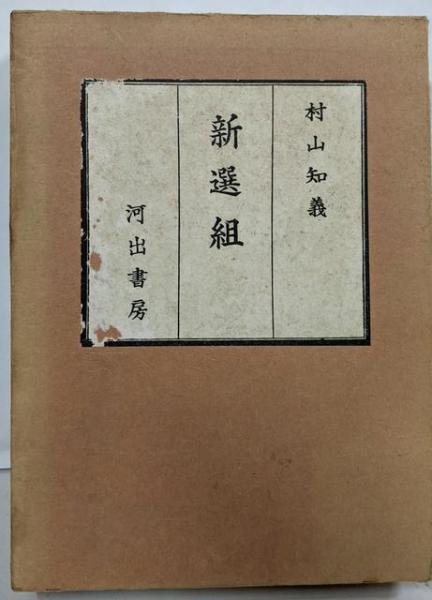 村山知義
新選組
河出書房